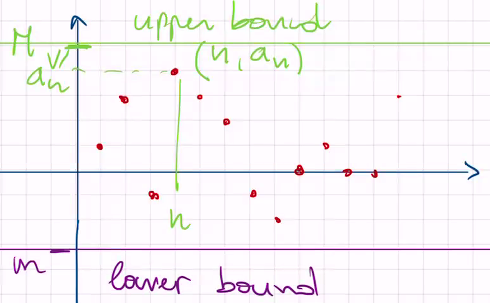 M upper bound
V/
aₙ (n, aₙ)
n
m lower bound